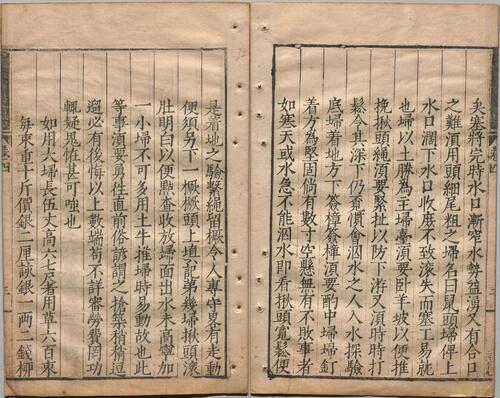 矣塞將完時水口漸窄水勢益湧又有合口
之難須用頭細尾粗之埽名曰鼠頭埽俾上
水口濶下水口收庶不致滚失而塞工易就
也埽以土勝為主埽臺須要卧羊坡以便推
挽揪頭繩須要緊扯以防下游又須時時打
鬆令其深下仍責慣會泅水之人入水探驗
底埽着地方下簽樁簽樁須要酌中埽埽釘
着方為堅固倘有數寸空懸無有不敗事者
如寒天或水急不能泅水即看揪頭寬鬆便
是着地之驗繫繩留橛令人專守畧有走動
便須另下一橛橛頭上填記第幾埽揪頭滚
肚明白以便點查收放埽面出水未高寧加
一小埽不可多用土牛推埽時易動故也此
等事須要勇往直前俗諺謂之搶築稍稍逗
遛必有後悔以上數端苟不詳審勞費罔功
輒疑鬼恠甚可嗤也
如用大埽長伍丈高六七尺者用草六百束
每束重十斤價銀二厘該銀一兩二錢柳
卷四